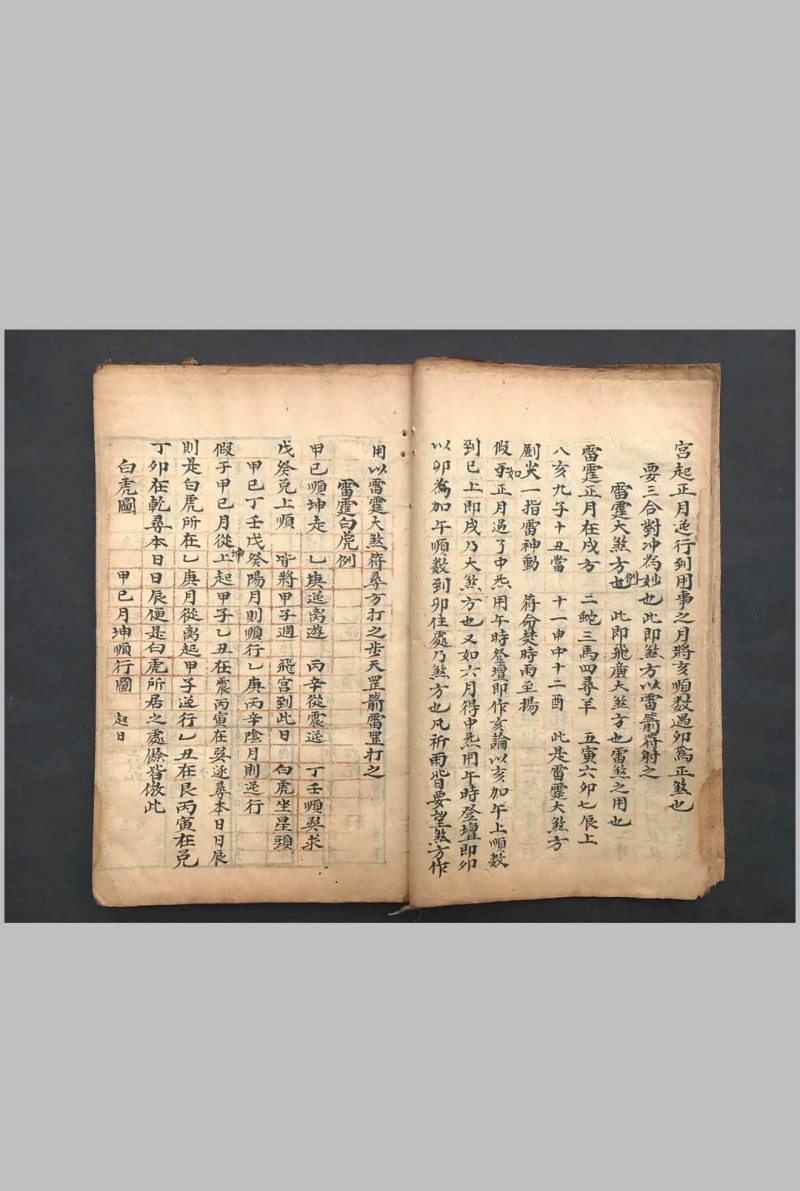 宮起正月逆行到用事之月將亥順数遇卯爲正煞也
要三合對冲為妙也此即煞方以雷箭符射之
雷霆大煞方例也 此即飛廣大煞方也雷煞之用也
雷霆正月在戌方 二蛇三馬四尋羊 五寅六卯七辰上
八亥九子十丑當 十一申中十二酉 此是雷霆大煞方
劍尖一指雷神動 符命焚時雨至揚
假如正月過了中炁用午時登壇即作亥論以亥加午上順数
到巳上即戌乃大煞方也又如六月得中炁用午時登壇即卯
以卯為加午順数到卯住處乃煞方也凡祈雨皆要望煞方作
用以雷霆大煞符尋方打之步天罡箭雷罡打之
雷霆白虎例
甲己順坤走 乙庚逆离遊 丙辛從震逆 丁壬順巽求
戊癸兑上順 皆將甲子週 飛宮到此日 白虎坐星頭
甲己丁壬戊癸陽月則順行乙庚丙辛陰月則逆行
假子甲己月從坤上起甲子乙丑在震丙寅在巽逐尋本日日辰
則是白虎所在乙庚月從离起甲子逆行乙丑在艮丙寅在兑
丁卯在乾尋本日日辰便是白虎所居之處餘皆倣此
白虎圖 甲己月坤順行圖 起日